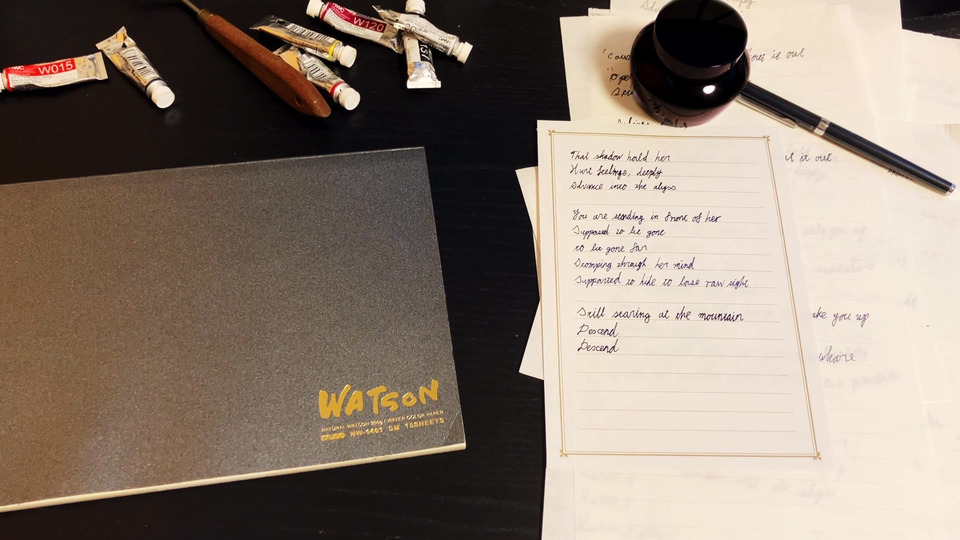 W015
W120
That shadow hold her
Hurt feelings, deeply
Advance into the abyss
You are standing in front of her
Supposed to be gone
to be gone far
Stomping through her mind
Supposed to hide to lose raw sight
Still staring at the mountain
Descend
Descend
out it out
it out
ake you up
where
WATSON
NATURAL WATSON WATER COLOR PAPER
NW-1401 SM 15SHEETS